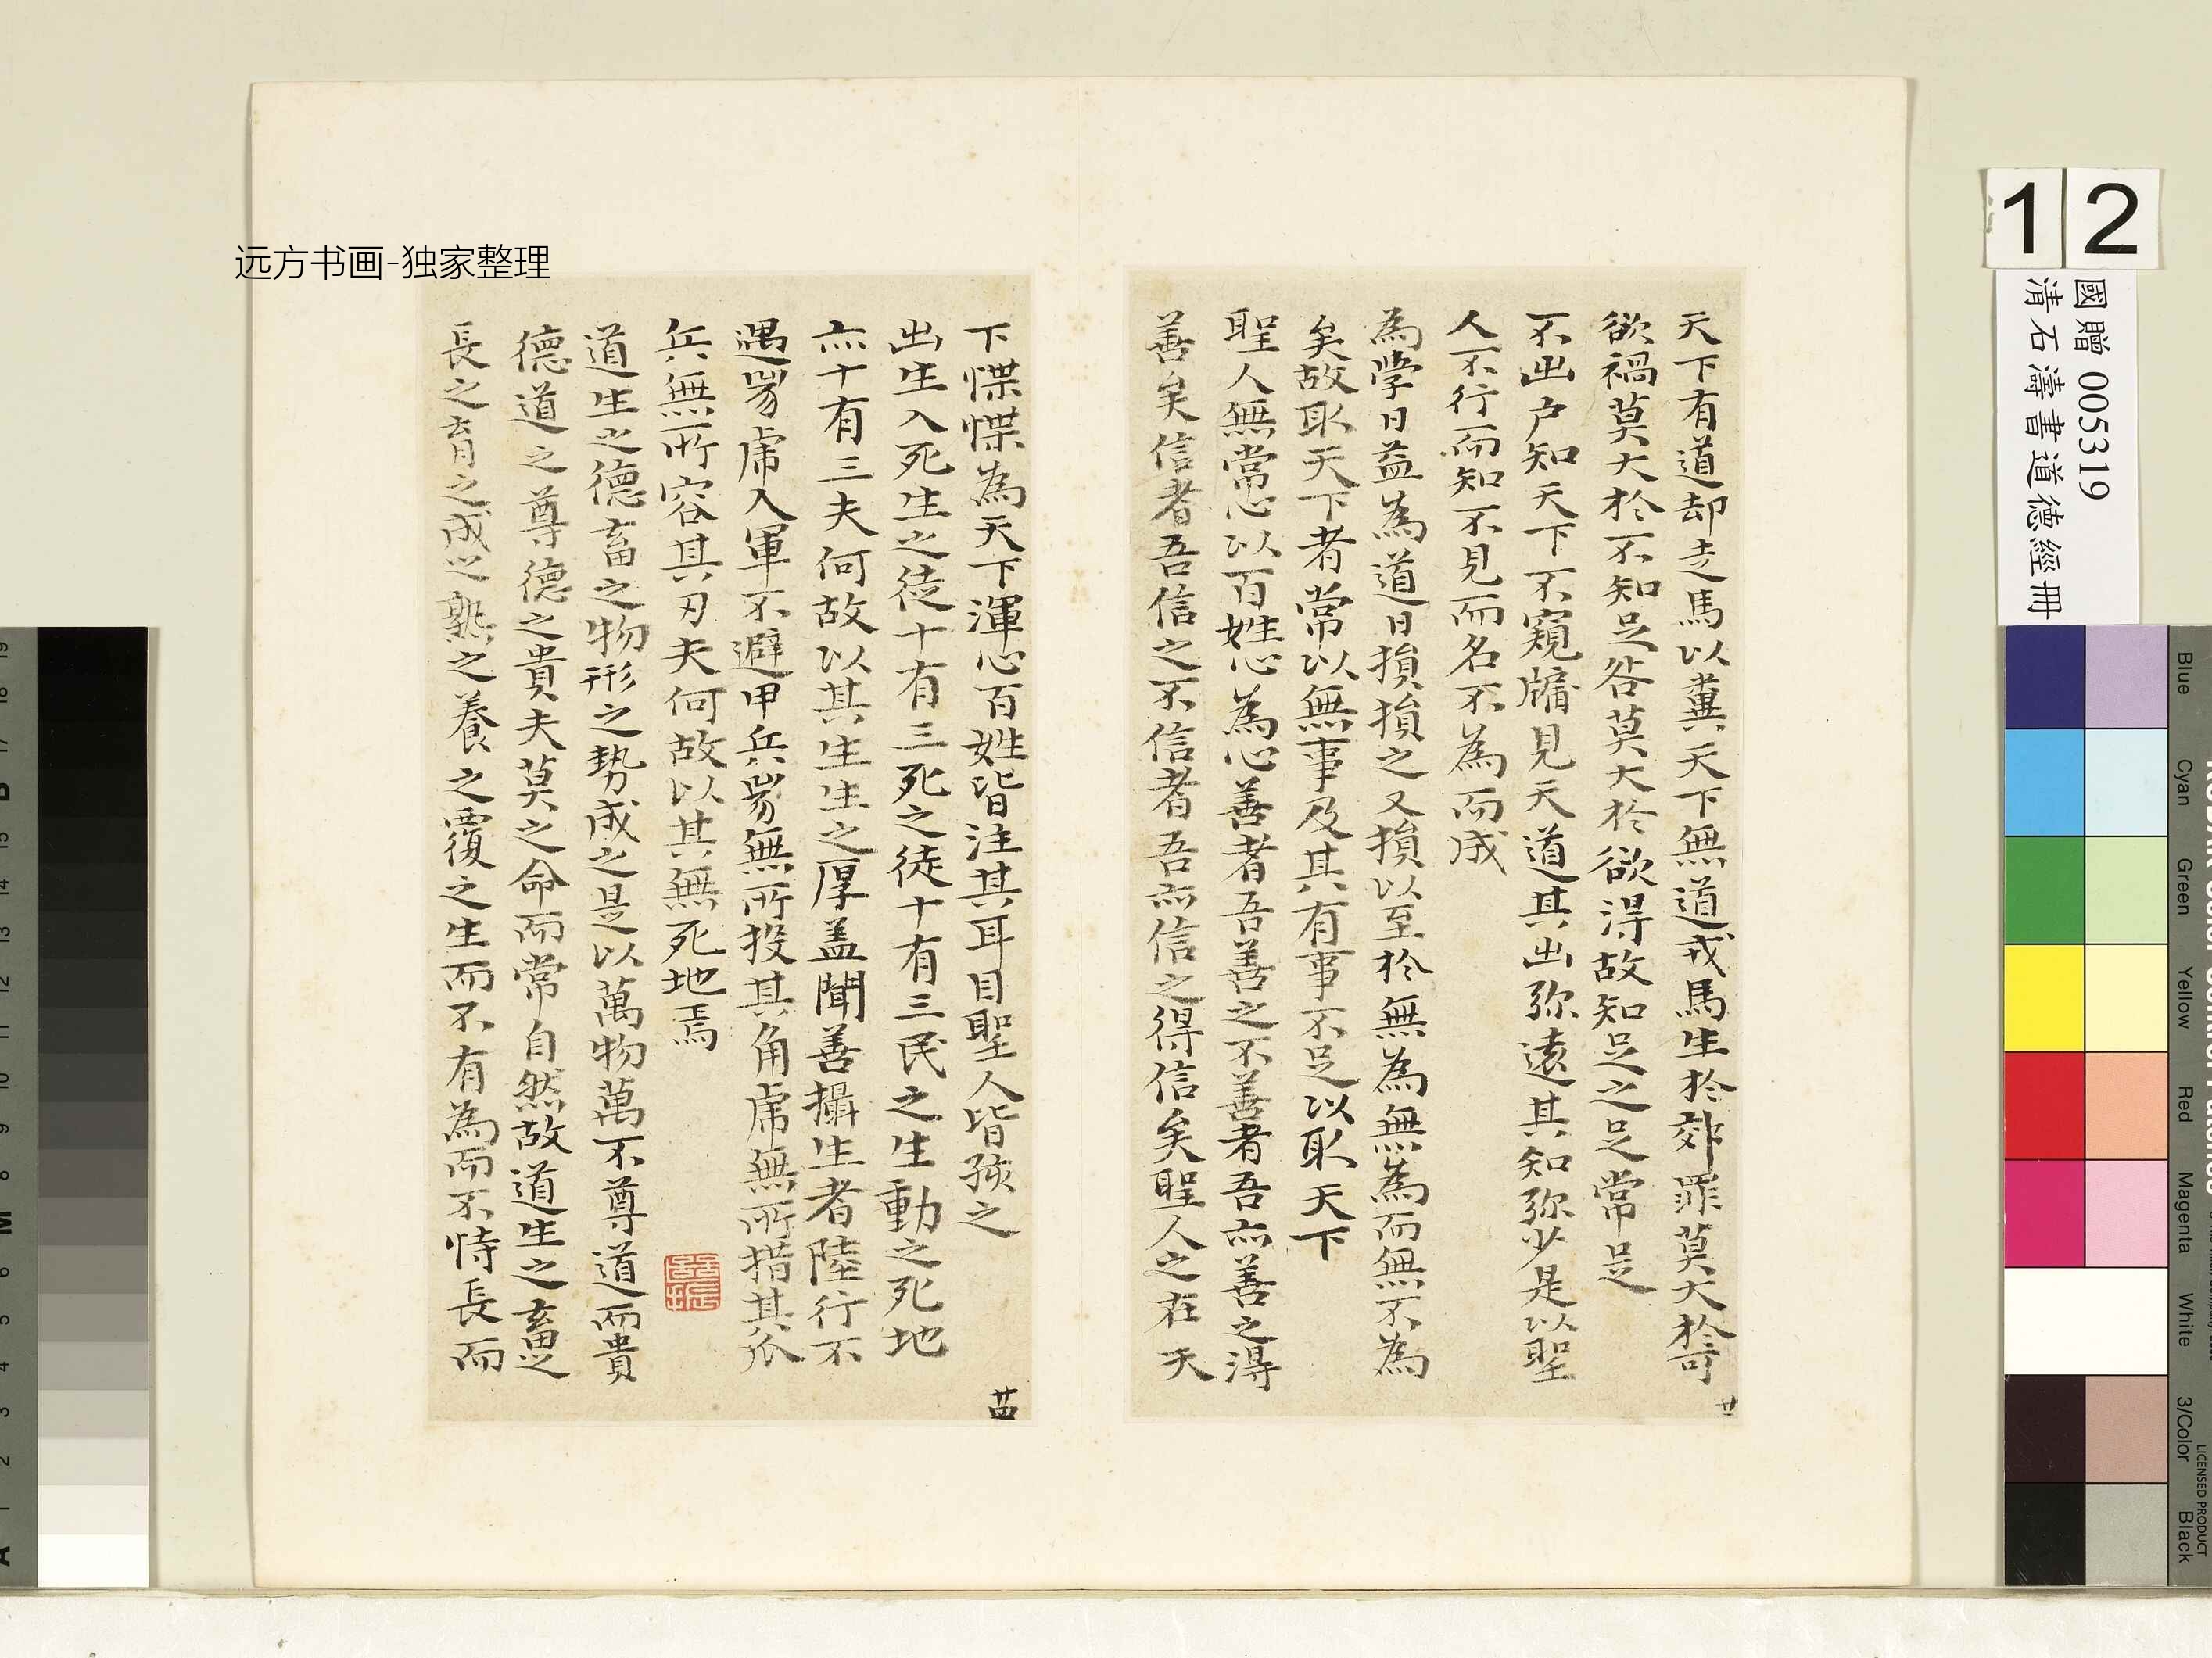 天下有道却走馬以糞天下無道戎馬生於郊罪莫大於可
欲禍莫大於不知足咎莫大於欲得故知足之足常足
不出户知天下不窺牖見天道其出弥遠其知弥少是以聖
人不行而知不見而名不為而成
為學日益為道日損損之又損以至於無為無為而無不為
矣故取天下者常以無事及其有事不足以取天下
聖人無常心以百姓心為心善者吾善之不善者吾亦善之得
善矣信者吾信之不信者吾亦信之得信矣聖人之在天
廿
下惵惵為天下渾心百姓皆注其耳目聖人皆孩之
出生入死生之徒十有三死之徒十有三民之生動之死地
亦十有三夫何故以其生生之厚盖聞善攝生者陸行不
遇兕虎入軍不避甲兵兕無所投其角虎無所措其爪
兵無所容其刃夫何故以其無死地焉
道生之德畜之物形之勢成之是以萬物萬不尊道而貴
德道之尊德之貴夫莫之命而常自然故道生之畜之
長之育之成之熟之養之覆之生而不有為而不恃長而
廿四
远方书画-独家整理
12
國贈 005319
清石濤書道德經冊
Blue
Cyan
Green
Yellow
Red
Magenta
White
3/Color
Black
LICENSED PRODUCT
19
18
17
B
15
14
13
12
11
10
9
8
M
6
5
4
3
2
1
A